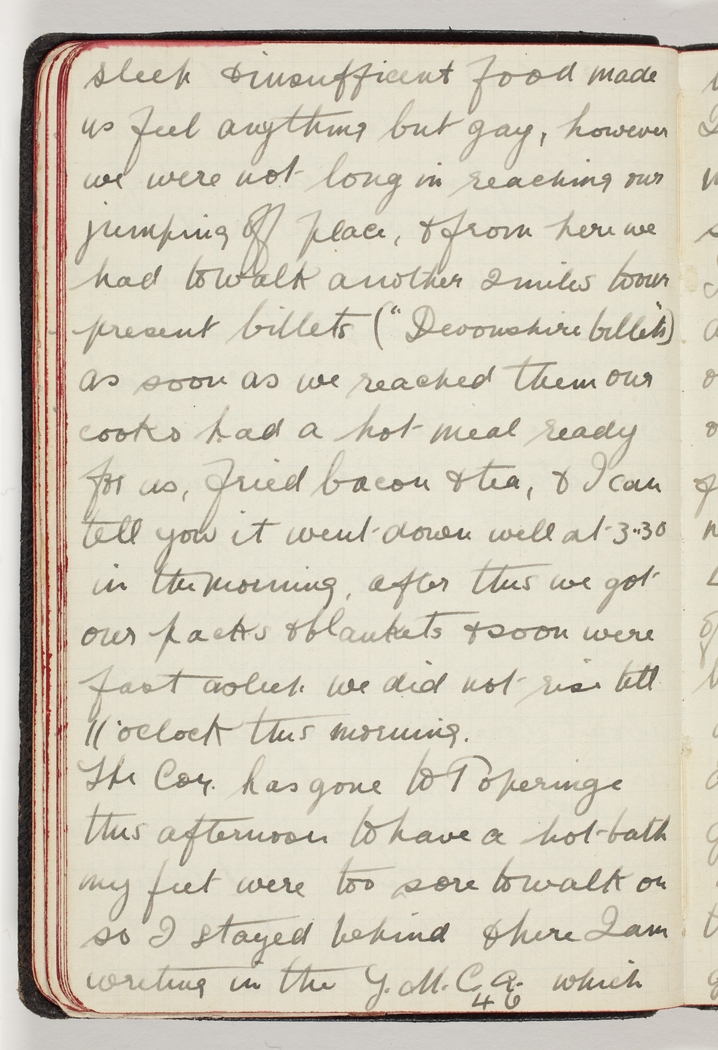 sleek & insufficient food made
us feel anything but gay, however
we were not long in reaching our
jumping off place, & from here we
had to walk another 2 miles to our
present billets ("Devonshire billets")
as soon as we reached them our
cooks had a hot meal ready
for us, fried bacon & tea, & I can
tell you it went down well at 3.30
in the morning, after this we got
our packs & blankets & soon were
fast asleep we did not rise till
11 oclock this morning.
The Coy. has gone to Poperinge
this afternoon to have a hot bath
my feet were too sore to walk on
so I stayed behind & here I am
writing in the Y.M.C.A. which
46